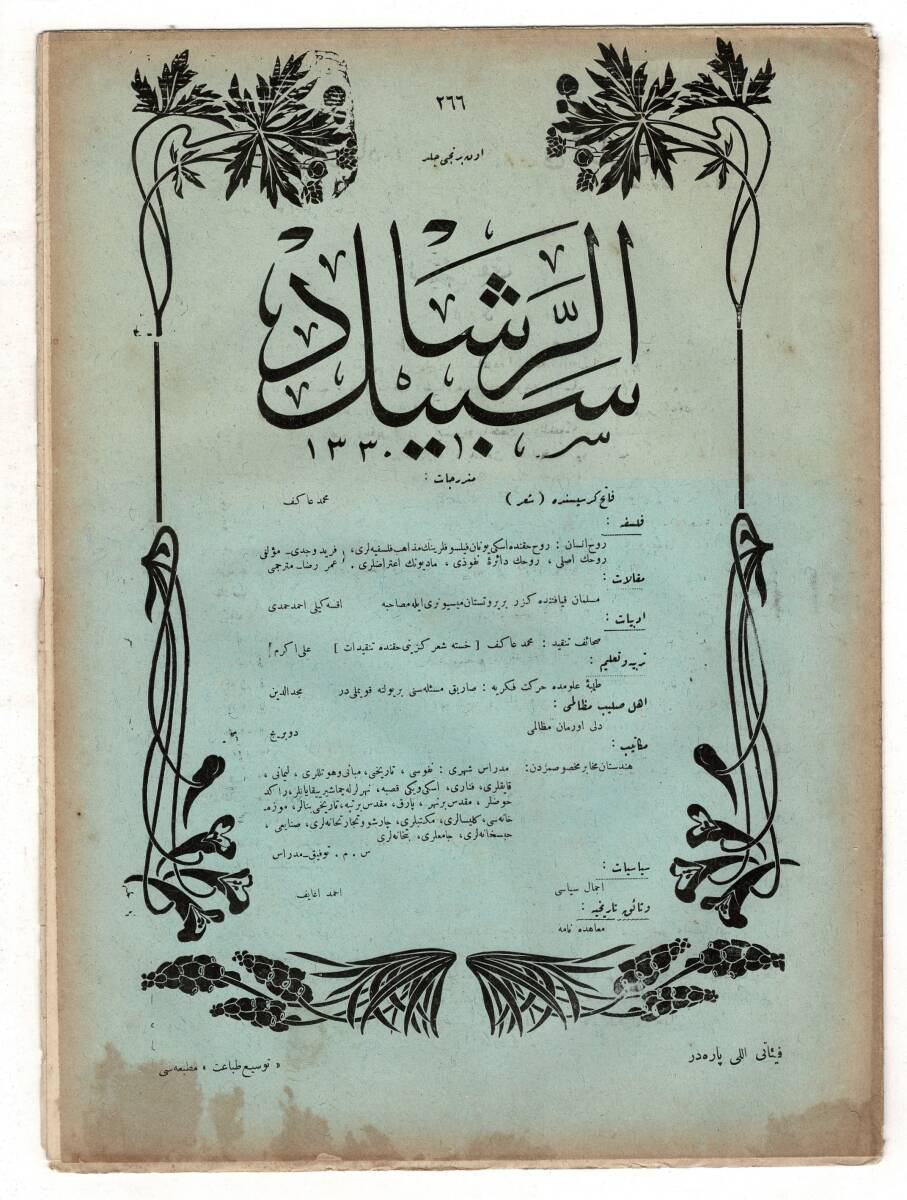 ٢٦٦
اون برنجی جلد
سبيل الرشاد
١٣٣٠
مندرجات :
فاتح كرسيسنده ( شعر ) محمد عاكف
فلسفه :
روح انسان : روح حقنده اسكی یونان فیلسوفلرینك مذاهب فلسفیه‌لری، فرید وجدی ـ مؤلفی
روحك اصلی ، روحك دائرهٔ نفوذی ، مادیونك اعتراضلری . عمر رضا ـ مترجمی
مقالات :
مسلمان قیافتنده كزر بر پروتستان میسیونری ایله مصاحبه احمد حمدی
ادبيات :
صحائف تنقید : محمد عاكف [ خسته شعر كزینی حقنده تنقیدات ] علی اكرم
تربيه و تعليم :
طلبهٔ علومده حركت فكریه : صاریق مسئله‌سی بر یولنه قویملی در مجدالدین
اهل صليب مظالمی :
دلی اورمان مظالمی دوبريج
مكاتيب :
هندستان مخابر مخصوصمزدن : مدراس شهری : نفوسی ، تاریخی، مبانی و هوتللری ، لیمانی ،
قایقلری، فناری، اسكی و یكی قصبه، نهرلرله چماشیر ییقایانلر، راكد
حوضلر ، مقدس بر نهر ، پارق، مقدس بر تپه، تاریخی بنالر، موزه
خانه‌سی، كلیسالری، مكتبلری، چارشو و تجارتخانه‌لری، صنایعی ،
حبسخانه‌لری، جامعلری، بتخانه‌لری
س . م . توفیق ـ مدراس
سياسيات :
اجمال سیاسی احمد اغایف
وثائق تاريخيه :
معاهده نامه
فیئاتی اللی پاره‌در
« توسیع طباعت » مطبعه‌سی